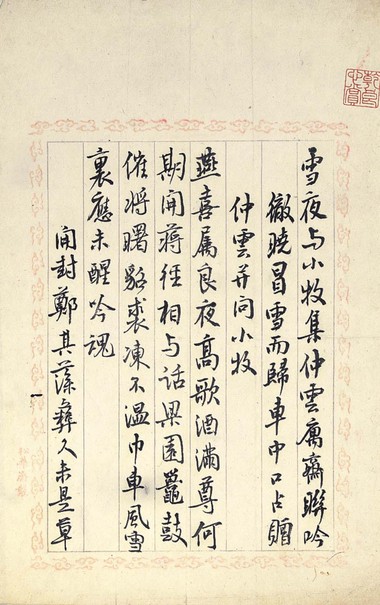 雪夜与小牧集仲雲寓齋聯吟
徹曉冒雪而歸車中口占贈
仲雲并問小牧
燕喜属良夜高歌酒满尊何
期開蒋徑相与话梁園鼉鼓
催将曙貂裘凍不温巾車風雪
裏應未醒吟魂
開封鄭其藻彝久未是草